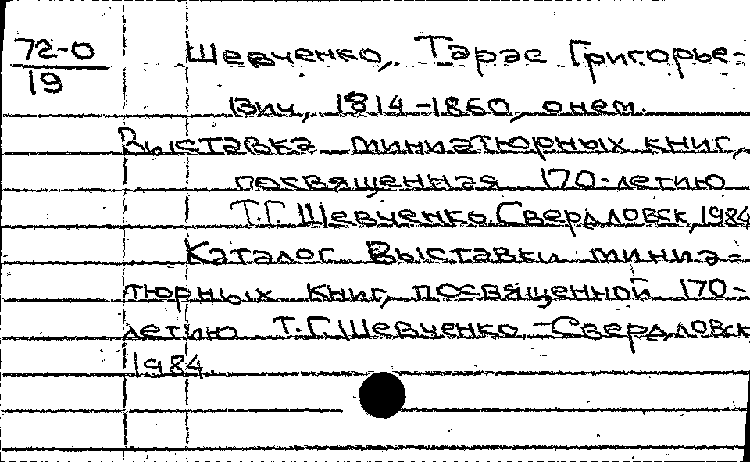 72-0
19
Шевченко, Тарас Григорье-
вич, 1814-1860, о нем.
Выставка миниатюрных книг,
посвященная 170-летию
Т.Г. Шевченко. Свердловск, 1984
Каталог выставки миниа-
тюрных книг, посвященной 170-
летию Т.Г. Шевченко - Свердловск
1984.